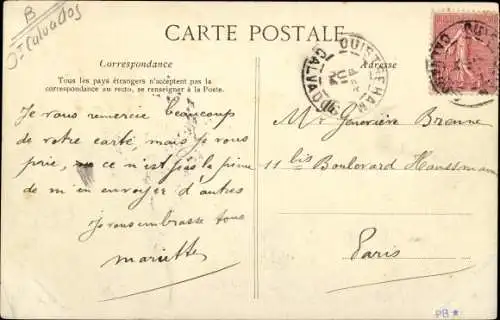 B
Calvados
CARTE POSTALE
Correspondance
Tous les pays étrangers n'acceptent pas la
correspondance au recto, se renseigner à la Poste.
Adresse
OUISTREHAM
CALVADOS
Je vous remercie beaucoup
de votre carte, mais je vous
prie, ce n'est pas la peine
de m'en envoyer d'autres
Je vous embrasse tous
Mariette
Mr Geneviève Brenne
11 bis Boulevard Haussmann
Paris
PB*